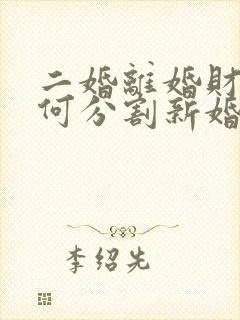 二婚離婚財
何分割新婚
李绍先